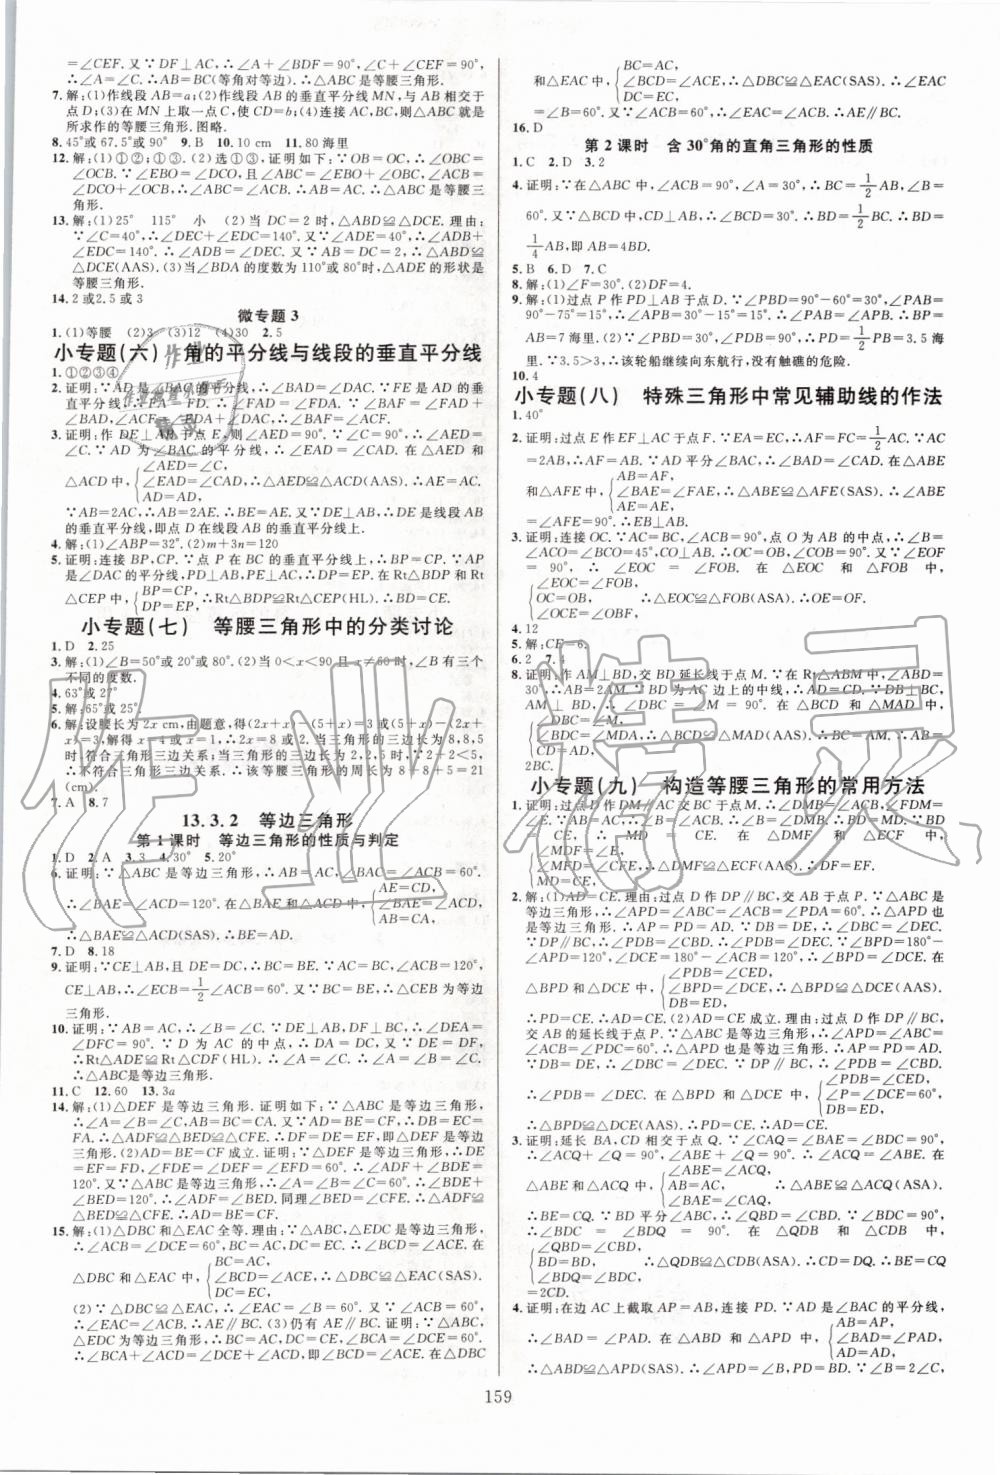 =∠CEF. 又∵DF⊥AC,∴∠A+∠BDF=90°,∠C+∠CEF=90°,
∴∠A=∠C. ∴AB=BC(等角对等边). ∴△ABC是等腰三角形.
7.解:(1)作线段AB=a;(2)作线段AB的垂直平分线MN,与AB相交于
点D;(3)在MN上取一点C,使CD=b;(4)连接AC,BC,则△ABC就是
所求作的等腰三角形.图略.
8.45°或67.5°或90° 9.B 10.10 cm 11.80海里
12.解:(1)①②;①③. (2)选①③,证明如下:∵OB=OC,∴∠OBC=
∠OCB. ∵∠EBO=∠DCO,且∠ABC=∠EBO+∠OBC,∠ACB=
∠DCO+∠OCB,∴∠ABC=∠ACB. ∴AB=AC. ∴△ABC是等腰三角
形.
13.解:(1)25° 115° 小 (2)当DC=2时,△ABD≌△DCE. 理由:
∵∠C=40°,∴∠DEC+∠EDC=140°. 又∵∠ADE=40°,∴∠ADB+
∠EDC=140°. ∴∠ADB=∠DEC. 又∵AB=DC=2,∴△ABD≌
△DCE(AAS). (3)当∠BDA的度数为110°或80°时,△ADE的形状是
等腰三角形.
14.2或2.5或3
微专题3
1.(1)等腰 (2)3 (3)12 (4)30 2.5
小专题(六) 角的平分线与线段的垂直平分线
1.①②③④
2.证明:∵AD是∠BAC的平分线,∴∠BAD=∠CAD. ∵FE是AD的垂
直平分线,∴FA=FD. ∴∠FAD=∠FDA. ∵∠BAF=∠FAD+
∠BAD,∠ACF=∠FDA+∠CAD,∴∠BAF=∠ACF.
3.证明:作DE⊥AB于点E,则∠AED=90°. ∵∠C=90°,∴∠AED=
∠C. ∵AD为∠BAC的平分线,∴∠EAD=∠CAD. 在△AED和
△ACD中,{∠AED=∠C,∠EAD=∠CAD,AD=AD,∴△AED≌△ACD(AAS). ∴AE=AC.
∵AB=2AC,∴AB=2AE. ∴BE=AE. 又∵DE⊥AB,∴DE是线段AB
的垂直平分线,即点D在线段AB的垂直平分线上.
4.解:(1)∠ABP=32°. (2)m+3n=120
5.证明:连接BP,CP. ∵点P在BC的垂直平分线上,∴BP=CP. ∵AP
是∠DAC的平分线,PD⊥AB,PE⊥AC,∴DP=EP. 在Rt△BDP和Rt
△CEP中,{BP=CP,DP=EP,∴Rt△BDP≌Rt△CEP(HL). ∴BD=CE.
小专题(七) 等腰三角形中的分类讨论
1.D 2.25
3.解:(1)∠B=50°或20°或80°. (2)当0<x<90且x≠60时,∠B有三个
不同的度数.
4.63°或27°
5.解:65°或25°.
6.解:设腰长为2x cm,由题意,得(2x+x)-(5+x)=3或(5+x)-(2x
+x)=3,解得x=4或x=1,∴2x=8或2. 当三角形的三边长为8,8,5
时,符合三角形三边关系;当三角形的三边长为2,2,5时,∵2+2<5,
∴不符合三角形三边关系. ∴该等腰三角形的周长为8+8+5=21
(cm).
7.A 8.7
13.3.2 等边三角形
第1课时 等边三角形的性质与判定
1.D 2.A 3.3 4.30° 5.20°
6.证明:∵△ABC是等边三角形,∴AB=CA,∠BAC=∠ACB=60°.
∴∠BAE=∠ACD=120°. 在△BAE和△ACD中,{AE=CD,∠BAE=∠ACD,AB=CA,
∴△BAE≌△ACD(SAS). ∴BE=AD.
7.D 8.18
9.证明:∵CE⊥AB,且DE=DC,∴BC=BE. ∵AC=BC,∠ACB=120°,
CE⊥AB,∴∠ECB=1/2∠ACB=60°. 又∵BC=BE,∴△CEB为等边
三角形.
10.证明:∵AB=AC,∴∠B=∠C. ∵DE⊥AB,DF⊥BC,∴∠DEA=
∠DFC=90°. ∵D为AC的中点,∴DA=DC. 又∵DE=DF,
∴Rt△ADE≌Rt△CDF(HL). ∴∠A=∠C. ∴∠A=∠B=∠C.
∴△ABC是等边三角形.
11.C 12.60 13.3a
14.解:(1)△DEF是等边三角形. 证明如下:∵△ABC是等边三角形,
∴∠A=∠B=∠C,AB=BC=CA. 又∵AD=BE=CF,∴DB=EC=
FA. ∴△ADF≌△BED≌△CFE. ∴DF=DE=EF,即△DEF是等边
三角形. (2)AD=BE=CF成立. 证明:∵△DEF是等边三角形,∴DE
=EF=FD,∠FDE=∠DEF=∠EFD=60°. ∴∠ADF+∠BDE=
120°. 又∵△ABC是等边三角形,∴∠A=∠B=∠C=60°. ∴∠BED+
∠BDE=120°. ∴∠ADF=∠BED. 同理∠BED=∠CFE. ∴△ADF≌
△BED≌△CFE. ∴AD=BE=CF.
15.解:(1)△DBC和△EAC全等. 理由:∵△ABC,△EDC是等边三角形,
∴∠ACB=∠DCE=60°,AC=BC,DC=EC. ∴∠BCD=∠ACE. 在
△DBC和△EAC中,{BC=AC,∠BCD=∠ACE,DC=EC,∴△DBC≌△EAC(SAS).
(2)∵△DBC≌△EAC,∴∠EAC=∠B=60°. 又∵∠ACB=60°,
∴∠EAC=∠ACB. ∴AE∥BC. (3)仍有AE∥BC. 证明:∵△ABC,
△EDC为等边三角形,∴BC=AC,DC=CE,∠BCA=∠DCE=60°.
∴∠BCA+∠ACD=∠DCE+∠ACD,即∠BCD=∠ACE. 在△DBC
和△EAC中,{BC=AC,∠BCD=∠ACE,DC=EC,∴△DBC≌△EAC(SAS). ∴∠EAC
=∠B=60°. 又∵∠ACB=60°,∴∠EAC=∠ACB. ∴AE∥BC.
16.D
第2课时 含30°角的直角三角形的性质
1.C 2.D 3.2
4.证明:∵在△ABC中,∠ACB=90°,∠A=30°,∴BC=1/2AB,∠B=
60°. 又∵△BCD中,CD⊥AB,∴∠BCD=30°. ∴BD=1/2BC. ∴BD=
1/4AB,即AB=4BD.
5.B 6.D 7.C
8.解:(1)∠F=30°. (2)DF=4.
9.解:(1)过点P作PD⊥AB于点D. ∵∠PBD=90°-60°=30°,∠PAB=
90°-75°=15°,∴∠PAB=∠APB. ∴BP=AB=7海里. (2)PD=1/2PB=3.5
海里. ∵3.5>3,∴该轮船继续向东航行,没有触礁的危险.
10.4
小专题(八) 特殊三角形中常见辅助线的作法
1.40°
2.证明:过点E作EF⊥AC于点F. ∵EA=EC,∴AF=FC=1/2AC. ∵AC
=2AB,∴AF=AB. ∵AD平分∠BAC,∴∠BAD=∠CAD. 在△ABE
和△AFE中,{AB=AF,∠BAE=∠FAE,AE=AE,∴△ABE≌△AFE(SAS). ∴∠ABE
=∠AFE=90°. ∴EB⊥AB.
3.证明:连接OC. ∵AC=BC,∠ACB=90°,点O为AB的中点,∴∠B=
∠ACO=∠BCO=45°,CO⊥AB. ∴OC=OB,∠COB=90°. 又∵∠EOF
=90°,∴∠EOC=∠FOB. 在△EOC和△FOB中,
{∠EOC=∠FOB,OC=OB,∠OCE=∠OBF,∴△EOC≌△FOB(ASA). ∴OE=OF.
4.12
5.解:CE=6.
6.2 7.4
8.证明:作AM⊥BD,交BD延长线于点M. ∵在Rt△ABM中,∠ABD=
30°,∴AB=2AM. ∵BD为AC边上的中线,∴AD=CD. ∵DB⊥BC,
AM⊥BD,∴∠DBC=∠M=90°. 在△BCD和△MAD中,
∴△BCD≌△MAD(AAS). ∴BC=AM. ∴AB=
2BC.
小专题(九) 构造等腰三角形的常用方法
1.证明:过点D作DM∥AC交BC于M,∴∠DMB=∠ACB,∠FDM=
∠E. ∵AB=AC,∴∠B=∠ACB. ∴∠B=∠DMB. ∴BD=MD. ∵BD
=CE,∴MD=CE. 在△DMF和△ECF中,
{∠MDF=∠E,∠MFD=∠CFE,MD=CE,∴△DMF≌△ECF(AAS). ∴DF=EF.
2.解:(1)AD=CE. 理由:过点D作DP∥BC,交AB于点P. ∵△ABC是
等边三角形,∴∠APD=∠ABC=∠ACB=∠PDA=60°. ∴△APD是
等边三角形. ∴AP=PD=AD. ∵DB=DE,∴∠DBC=∠DEC.
∵DP∥BC,∴∠PDB=∠CBD. ∴∠PDB=∠DEC. ∵∠BPD=180°-
∠APD=120°,∠DCE=180°-∠ACB=120°,∴∠BPD=∠DCE. 在
△BPD和△DCE中,{∠PDB=∠CED,∠BPD=∠DCE,DB=DE,∴△BPD≌△DCE(AAS).
∴PD=CE. ∴AD=CE. (2)AD=CE成立. 理由:过点D作DP∥BC,
交AB的延长线于点P. ∵△ABC是等边三角形,∴∠APD=∠ABC=
∠ACB=∠A=60°. ∴△APD是等边三角形. ∴AP=PD=AD.
∵DB=DE,∴∠DBC=∠DEC. ∵DP∥BC,∴∠PDB=∠CBD.
∴∠PDB=∠DEC. 在△BPD和△DCE中,{∠PDB=∠CED,∠P=∠DCE=60°,DB=DE,
∴△BPD≌△DCE(AAS). ∴PD=CE. ∴AD=CE.
3.证明:延长BA,CD相交于点Q. ∵∠CAQ=∠BAE=∠BDC=90°,
∴∠ACQ+∠Q=90°,∠ABE+∠Q=90°. ∴∠ACQ=∠ABE. 在
△ABE和△ACQ中,{∠ABE=∠ACQ,AB=AC,∠BAE=∠CAQ,∴△ABE≌△ACQ(ASA).
∴BE=CQ. ∵BD平分∠ABC,∴∠QBD=∠CBD. ∵∠BDC=90°,
∴∠BDC=∠BDQ=90°. 在△QDB和△CDB中,
{∠QBD=∠CBD,BD=BD,∠BDQ=∠BDC,∴△QDB≌△CDB(ASA). ∴CD=DQ. ∴BE=CQ
=2CD.
4.证明:在边AC上截取AP=AB,连接PD. ∵AD是∠BAC的平分线,
∴∠BAD=∠PAD. 在△ABD和△APD中,{AB=AP,∠BAD=∠PAD,AD=AD,
∴△ABD≌△APD(SAS). ∴∠APD=∠B,PD=BD. ∵∠B=2∠C,
159